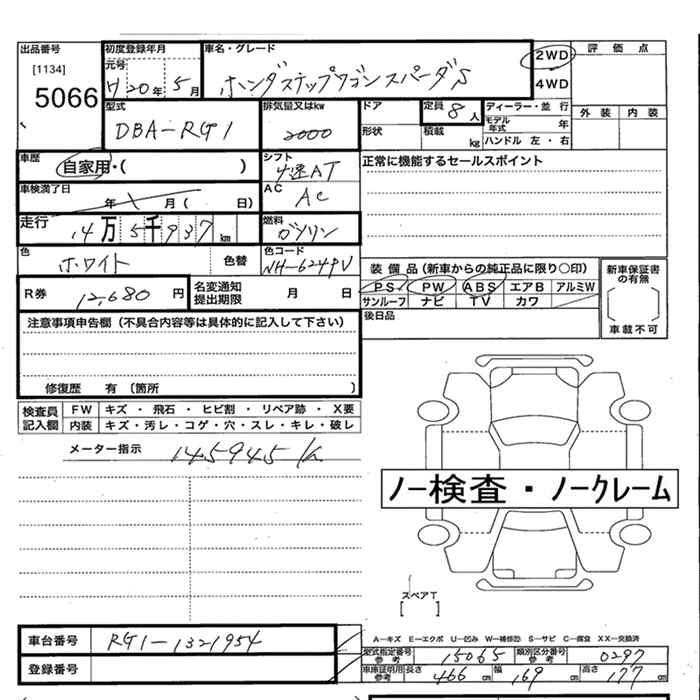 出品番号
[1134]
5066
初度登録年月
元号
H20年 5月
車名・グレード
ホンダ ステップワゴン スパーダS
2WD
4WD
評価点
外装 内装
型式
DBA-RG1
排気量又はkw
2000
ドア
形状
定員 8人
積載 kg
ディーラー・並行
モデル年式 年
ハンドル 左・右
車歴
自家用・( )
シフト
4速AT
正常に機能するセールスポイント
車検満了日
年 月( 日)
AC
AC
走行
14万5千937km
燃料
ガソリン
色
ホワイト
色替
色コード
NH-624PV
装備品(新車からの純正品に限り○印)
PS PW ABS エアB アルミW
サンルーフ ナビ TV カワ
新車保証書の有無
車載不可
R券
12,680円
名変通知提出期限
月 日
後日品
注意事項申告欄(不具合内容等は具体的に記入して下さい)
修復歴 有〔箇所 〕
検査員記入欄
FW キズ・飛石・ヒビ割・リペア跡・X要
内装 キズ・汚レ・コゲ・穴・スレ・キレ・破レ
メーター指示
145945
ノー検査・ノークレーム
スペアT
[ ]
A-キズ E-エクボ U-凹み W-補修跡 S-サビ C-腐食 XX-交換済
車台番号
RG1-1321954
型式指定番号参考
15065
類別区分番号参考
0297
登録番号
車庫証明用参考
長さ 466cm 幅 169cm 高さ 177cm